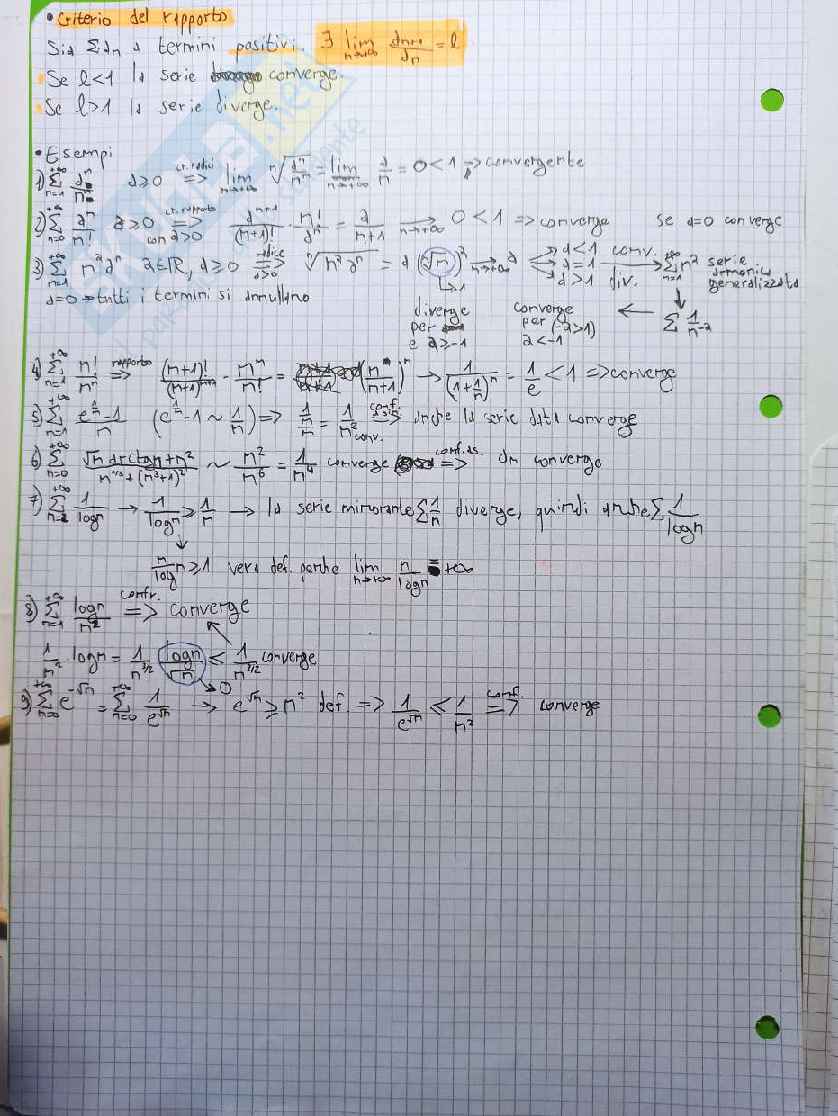 • Criterio del rapporto
Sia Σan a termini positivi. ∃ lim n→+∞ an+1/an = l
Se l<1 la serie converge.
Se l>1 la serie diverge.
• Esempi
1) Σ n=1 +∞ aⁿ/nⁿ a≥0 cr. radici => lim n→+∞ ⁿ√(aⁿ/nⁿ) = lim n→+∞ a/n = 0<1 => convergente
2) Σ n=0 +∞ aⁿ/n! a≥0 cr. rapporto => con a>0 aⁿ⁺¹/(n+1)! · n!/aⁿ = a/n+1 → n→+∞ 0<1 => converge se a=0 converge
3) Σ n=1 +∞ n^α aⁿ α∈ℝ, a≥0 => a>0 ⁿ√(n^α aⁿ) = a (ⁿ√n)^α → n→+∞ a a<1 conv. a=1 a>1 div. → Σ n=1 +∞ n^α serie armonica generalizzata
a=0 → tutti i termini si annullano
→1 diverge per α≥-1 converge per (-α>1) α<-1 ← Σ 1/n^-α
4) Σ n=1 +∞ n!/nⁿ rapporto => (n+1)!/(n+1)ⁿ⁺¹ · nⁿ/n! = (n/n+1)ⁿ → 1/(1+1/n)ⁿ = 1/e <1 => converge
5) Σ n=1 +∞ e^(1/n)-1/n (e^(1/n)-1 ~ 1/n) => 1/n/n = 1/n² conv. conf. asin. => anche la serie data converge
6) Σ n=0 +∞ √n arctan+n²/n^1/3+(n³+1)² ~ n²/n⁶ = 1/n⁴ converge conf. as. => an converge
7) Σ n=2 +∞ 1/logn → 1/logn ≥ 1/n → la serie minorante Σ1/n diverge, quindi anche Σ 1/logn
n/logn ≥1 vera def. perché lim n→+∞ n/logn = +∞
8) Σ n=1 +∞ logn/n² confr. => converge
1/n² logn = 1/n^3/2 logn/√n ≤ 1/n^3/2 converge
→0
9) Σ n=0 +∞ e^-√n = Σ n=0 +∞ 1/e^√n → e^√n ≥ n² def. => 1/e^√n ≤ 1/n² conf. => converge